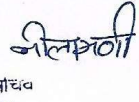 नीलमणी